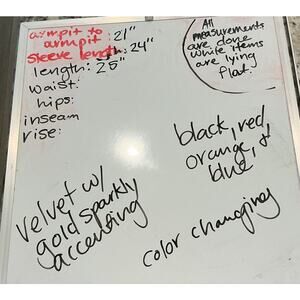 armpit to
armpit: 21"
sleeve length: 24"
length: 25"
waist:
hips:
inseam
rise:
All
measurements
are done
while items
are lying
flat.
black, red,
orange, +
blue
velvet w/
gold sparkly
accenting
color changing